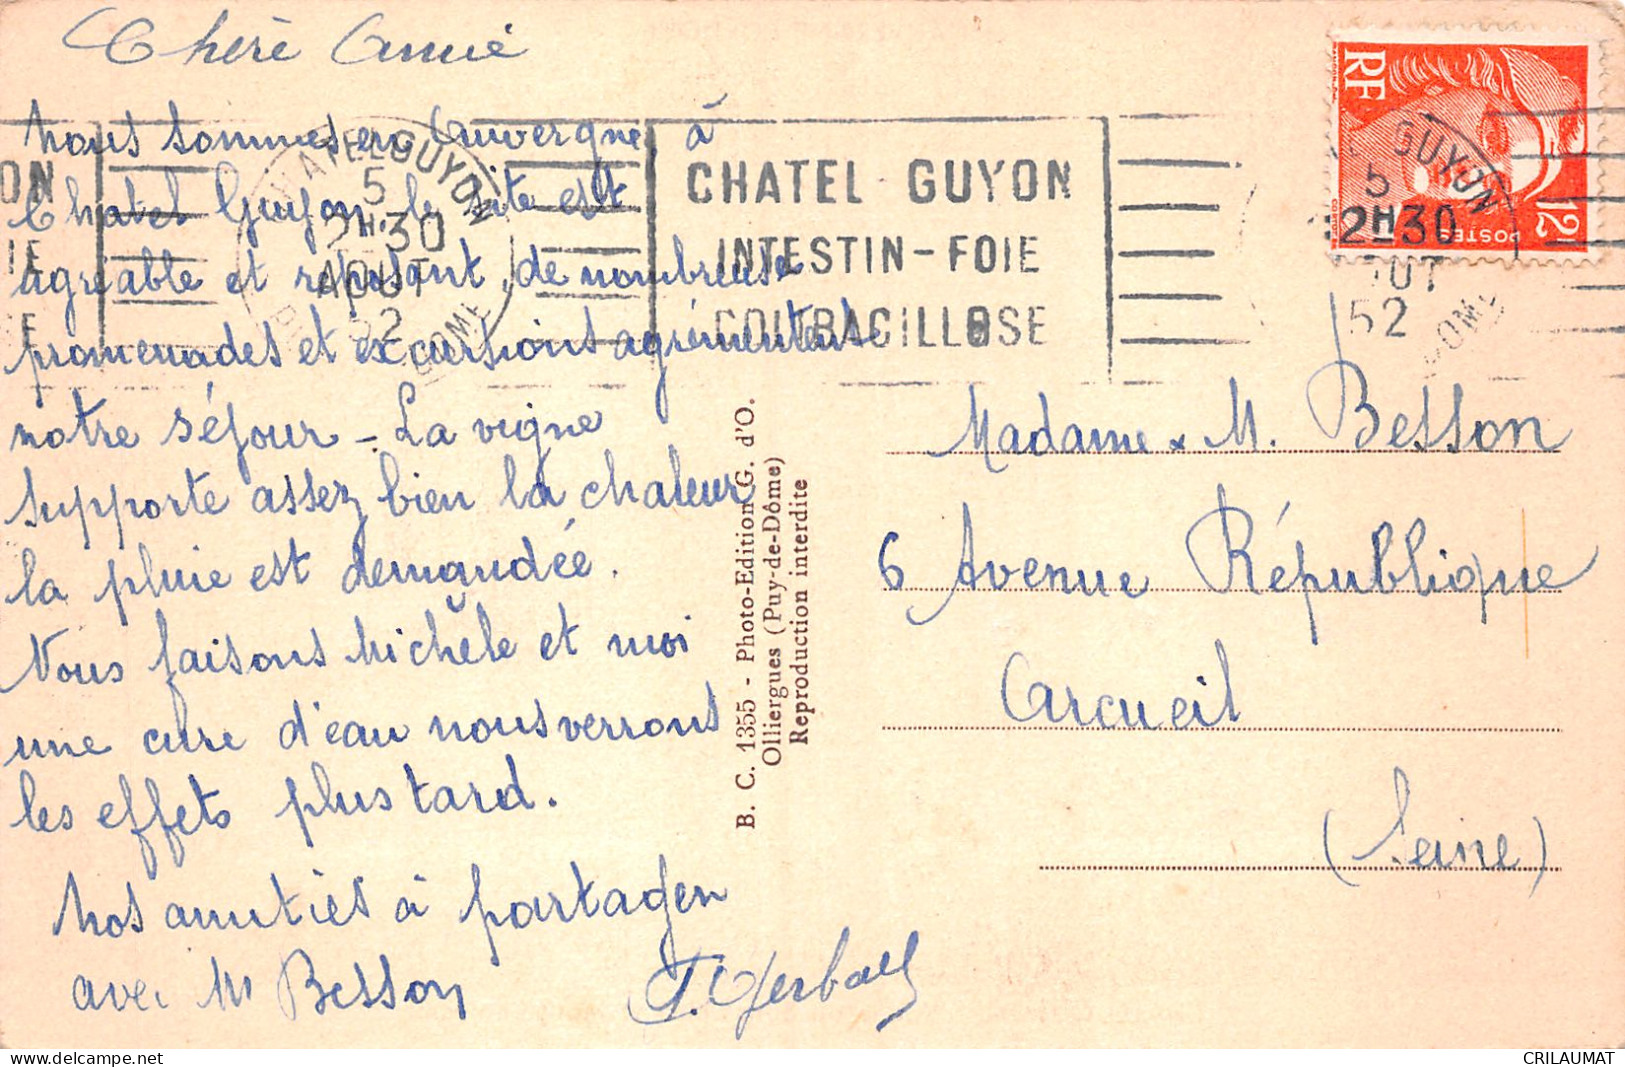 Chère Annie
Nous sommes en Auvergne, à
Chatel Guyon, le site est
agréable et reposant, de nombreuse
promenades et excursions agrémentent
notre séjour – La vigne
supporte assez bien la chaleur
la pluie est demandée.
Nous faisons Michèle et moi
une cure d'eau nous verrons
les effets plus tard.
Nos amitiés à partager
avec M Besson
CHATELGUYON
5
2H30
AOUT
52
DOME
ON
IE
E
CHATEL GUYON
INTESTIN-FOIE
COLIBACILLOSE
RF
POSTES
12F
GUYON
5
12H30
OUT
52
DOME
B. C. 1355 - Photo-Edition G. d'O.
Olliergues (Puy-de-Dôme)
Reproduction interdite
Madame & M. Besson
6 Avenue République
Arcueil
(Seine)
CRILAUMAT